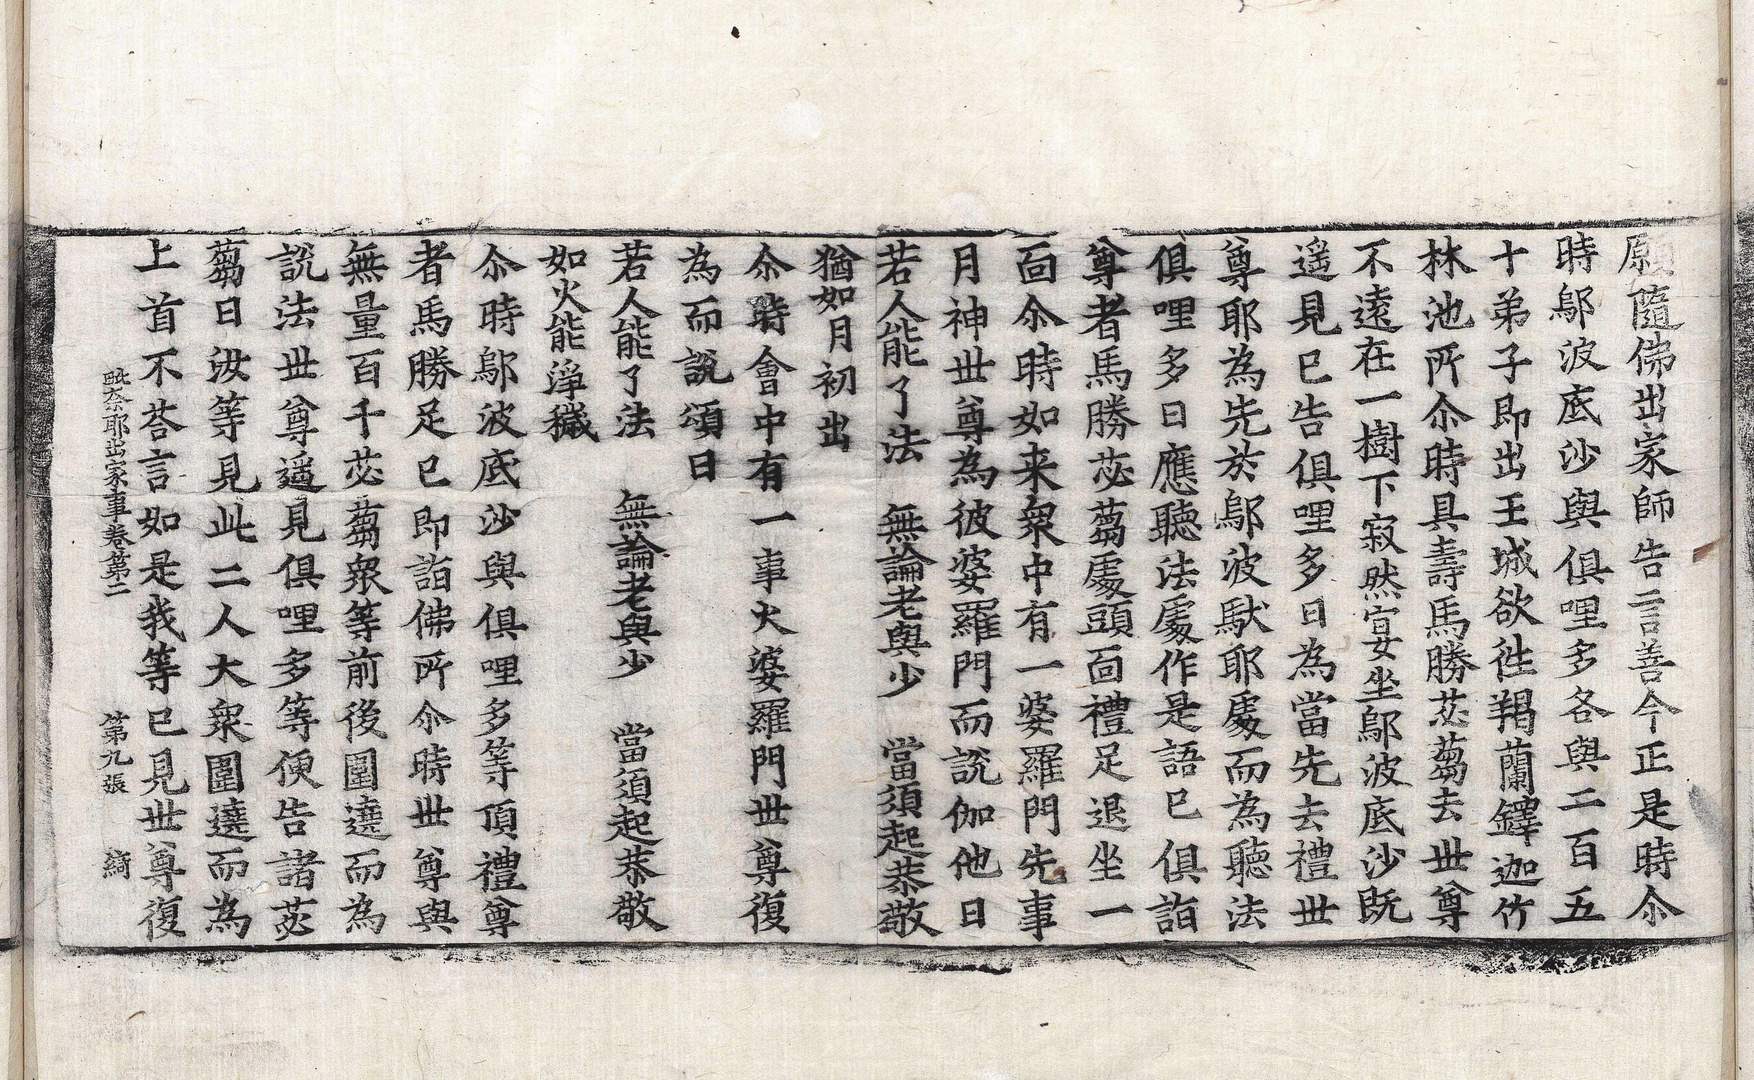 願隨佛出家師告言善今正是時尒
時鄔波底沙與俱哩多各與二百五
十弟子即出王城欲徃羯蘭鐸迦竹
林池所尒時具壽馬勝苾蒭去世尊
不遠在一樹下寂然宴坐鄔波底沙旣
遥見已告俱哩多曰為當先去禮世
尊耶為先於鄔波馱耶處而為聽法
俱哩多曰應聽法處作是語已俱詣
尊者馬勝苾蒭處頭面禮足退坐一
面尒時如来衆中有一婆羅門先事
月神世尊為彼婆羅門而說伽他曰
若人能了法　無論老與少　當須起恭敬
猶如月初出
尒時會中有一事火婆羅門世尊復
為而說頌曰
若人能了法　無論老與少　當須起恭敬
如火能淨穢
尒時鄔波底沙與俱哩多等頂禮尊
者馬勝足已即詣佛所尒時世尊與
無量百千苾蒭衆等前後圍遶而為
說法世尊遥見俱哩多等便告諸苾
蒭曰汝等見此二人大衆圍遶而為
上首不荅言如是我等已見世尊復
毗奈耶出家事卷第二　第九張　綺